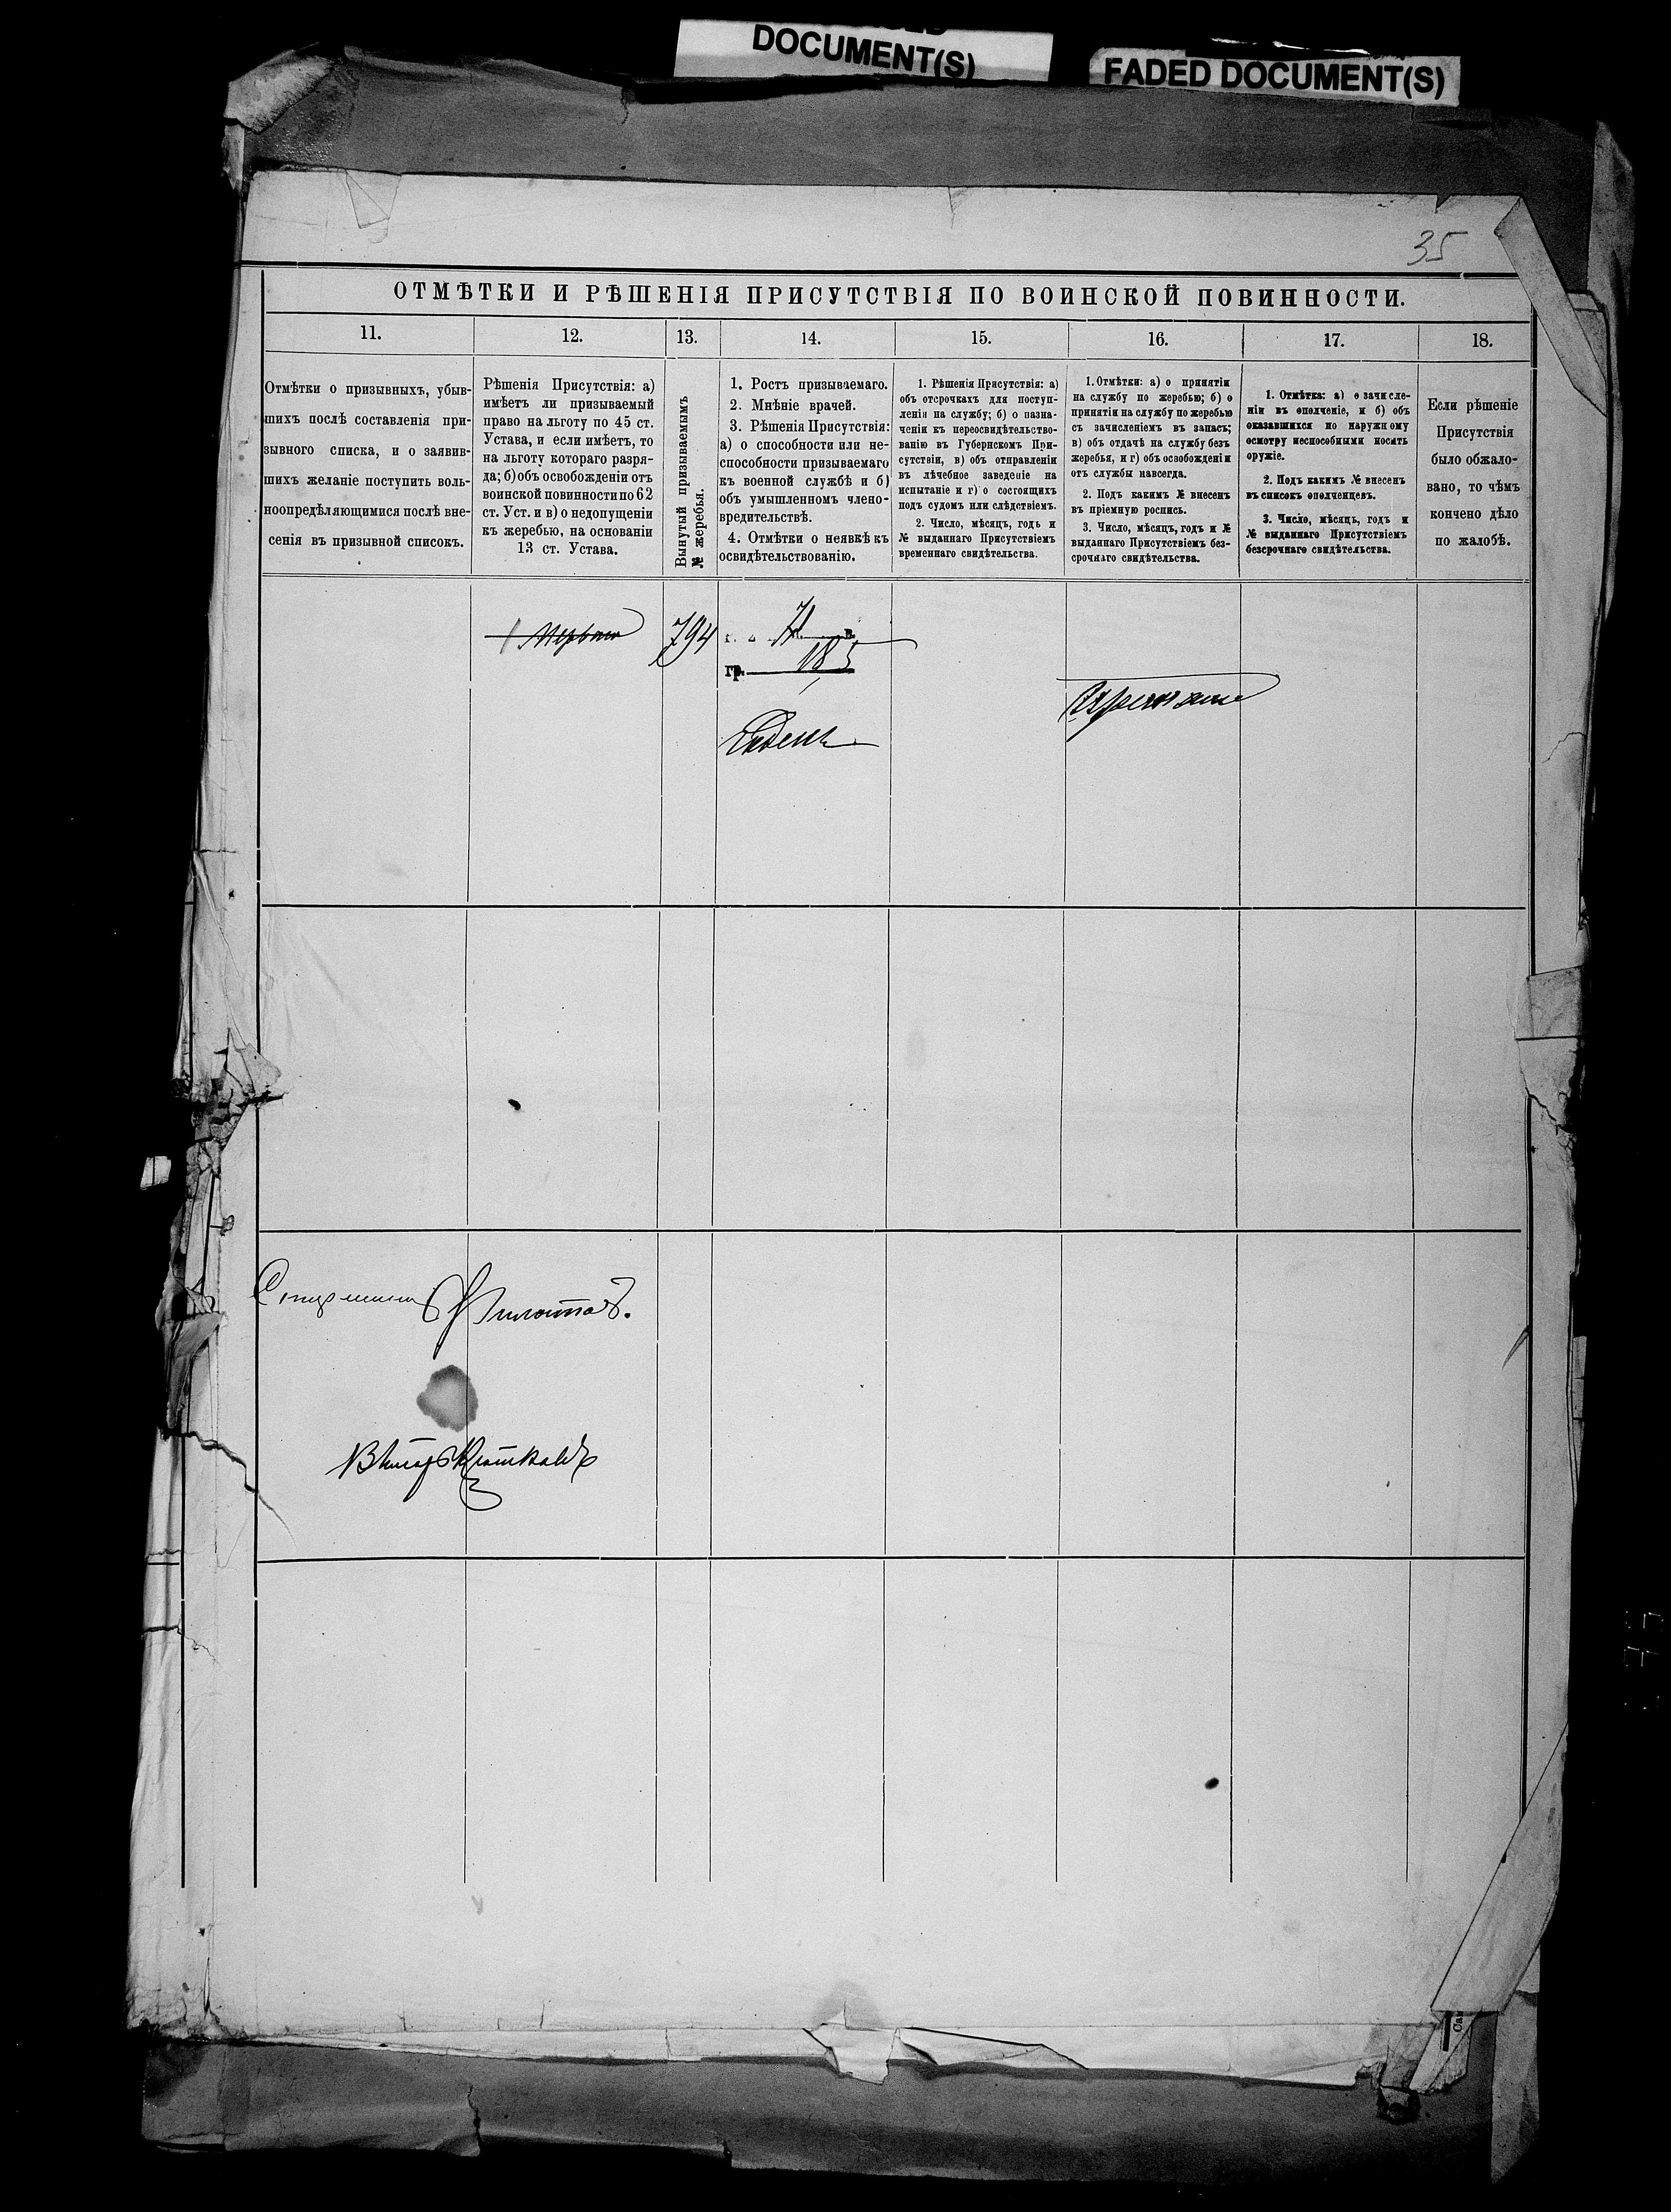 DOCUMENT(S)
FADED DOCUMENT(S)
35
ОТМѢТКИ И РѢШЕНІЯ ПРИСУТСТВІЯ ПО ВОИНСКОЙ ПОВИННОСТИ.
11.
12.
13.
14.
15.
16.
17.
18.
Отмѣтки о призывныхъ, убыв-
шихъ послѣ составленія при-
зывного списка, и о заявив-
шихъ желаніе поступить воль-
ноопредѣляющимися послѣ вне-
сенія въ призывной списокъ.
Рѣшенія Присутствія: а)
имѣетъ ли призываемый
право на льготу по 45 ст.
Устава, и если имѣетъ, то
на льготу котораго разря-
да; б) объ освобожденіи отъ
воинской повинности по 62
ст. Уст. и в) о недопущеніи
къ жеребью, на основаніи
13 ст. Устава.
Вынутый призываемымъ
№ жеребья.
1. Ростъ призываемаго.
2. Мнѣніе врачей.
3. Рѣшенія Присутствія:
а) о способности или не-
способности призываемаго
къ военной службѣ и б)
объ умышленномъ члено-
вредительствѣ.
4. Отмѣтки о неявкѣ къ
освидѣтельствованію.
1. Рѣшенія Присутствія: а)
объ отсрочкахъ для поступ-
ленія на службу; б) о назна-
ченіи къ переосвидѣтельство-
ванію въ Губернскомъ При-
сутствіи, в) объ отправленіи
въ лѣчебное заведеніе на
испытаніе и г) о состоящихъ
подъ судомъ или слѣдствіемъ.
2. Число, мѣсяцъ, годъ и
№ выданнаго Присутствіемъ
временнаго свидѣтельства.
1. Отмѣтки: а) о принятіи
на службу по жеребью; б) о
принятіи на службу по жеребью
съ зачисленіемъ въ запасъ;
в) объ отдачѣ на службу безъ
жеребья, и г) объ освобожденіи
отъ службы навсегда.
2. Подъ какимъ № внесенъ
въ пріемную роспись.
3. Число, мѣсяцъ, годъ и №
выданнаго Присутствіемъ без-
срочнаго свидѣтельства.
1. Отмѣтка: а) о зачисле-
ніи въ ополченіе, и б) объ
оказавшихся по наружному
осмотру неспособными носить
оружіе.
2. Подъ какимъ № внесенъ
въ списокъ ополченцевъ.
3. Число, мѣсяцъ, годъ и
№ выданнаго Присутствіемъ
безсрочнаго свидѣтельства.
Если рѣшеніе
Присутствія
было обжало-
вано, то чѣмъ
кончено дѣло
по жалобѣ.
794
гр. 18 5
Годенъ